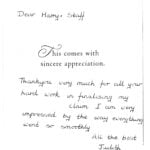 Dear Harry & Staff
This comes with
sincere appreciation.
Thankyou very much for all your
hard work in finalising my
claim. I am very
impressed by the way everything
went so smoothly
All the best
Judith